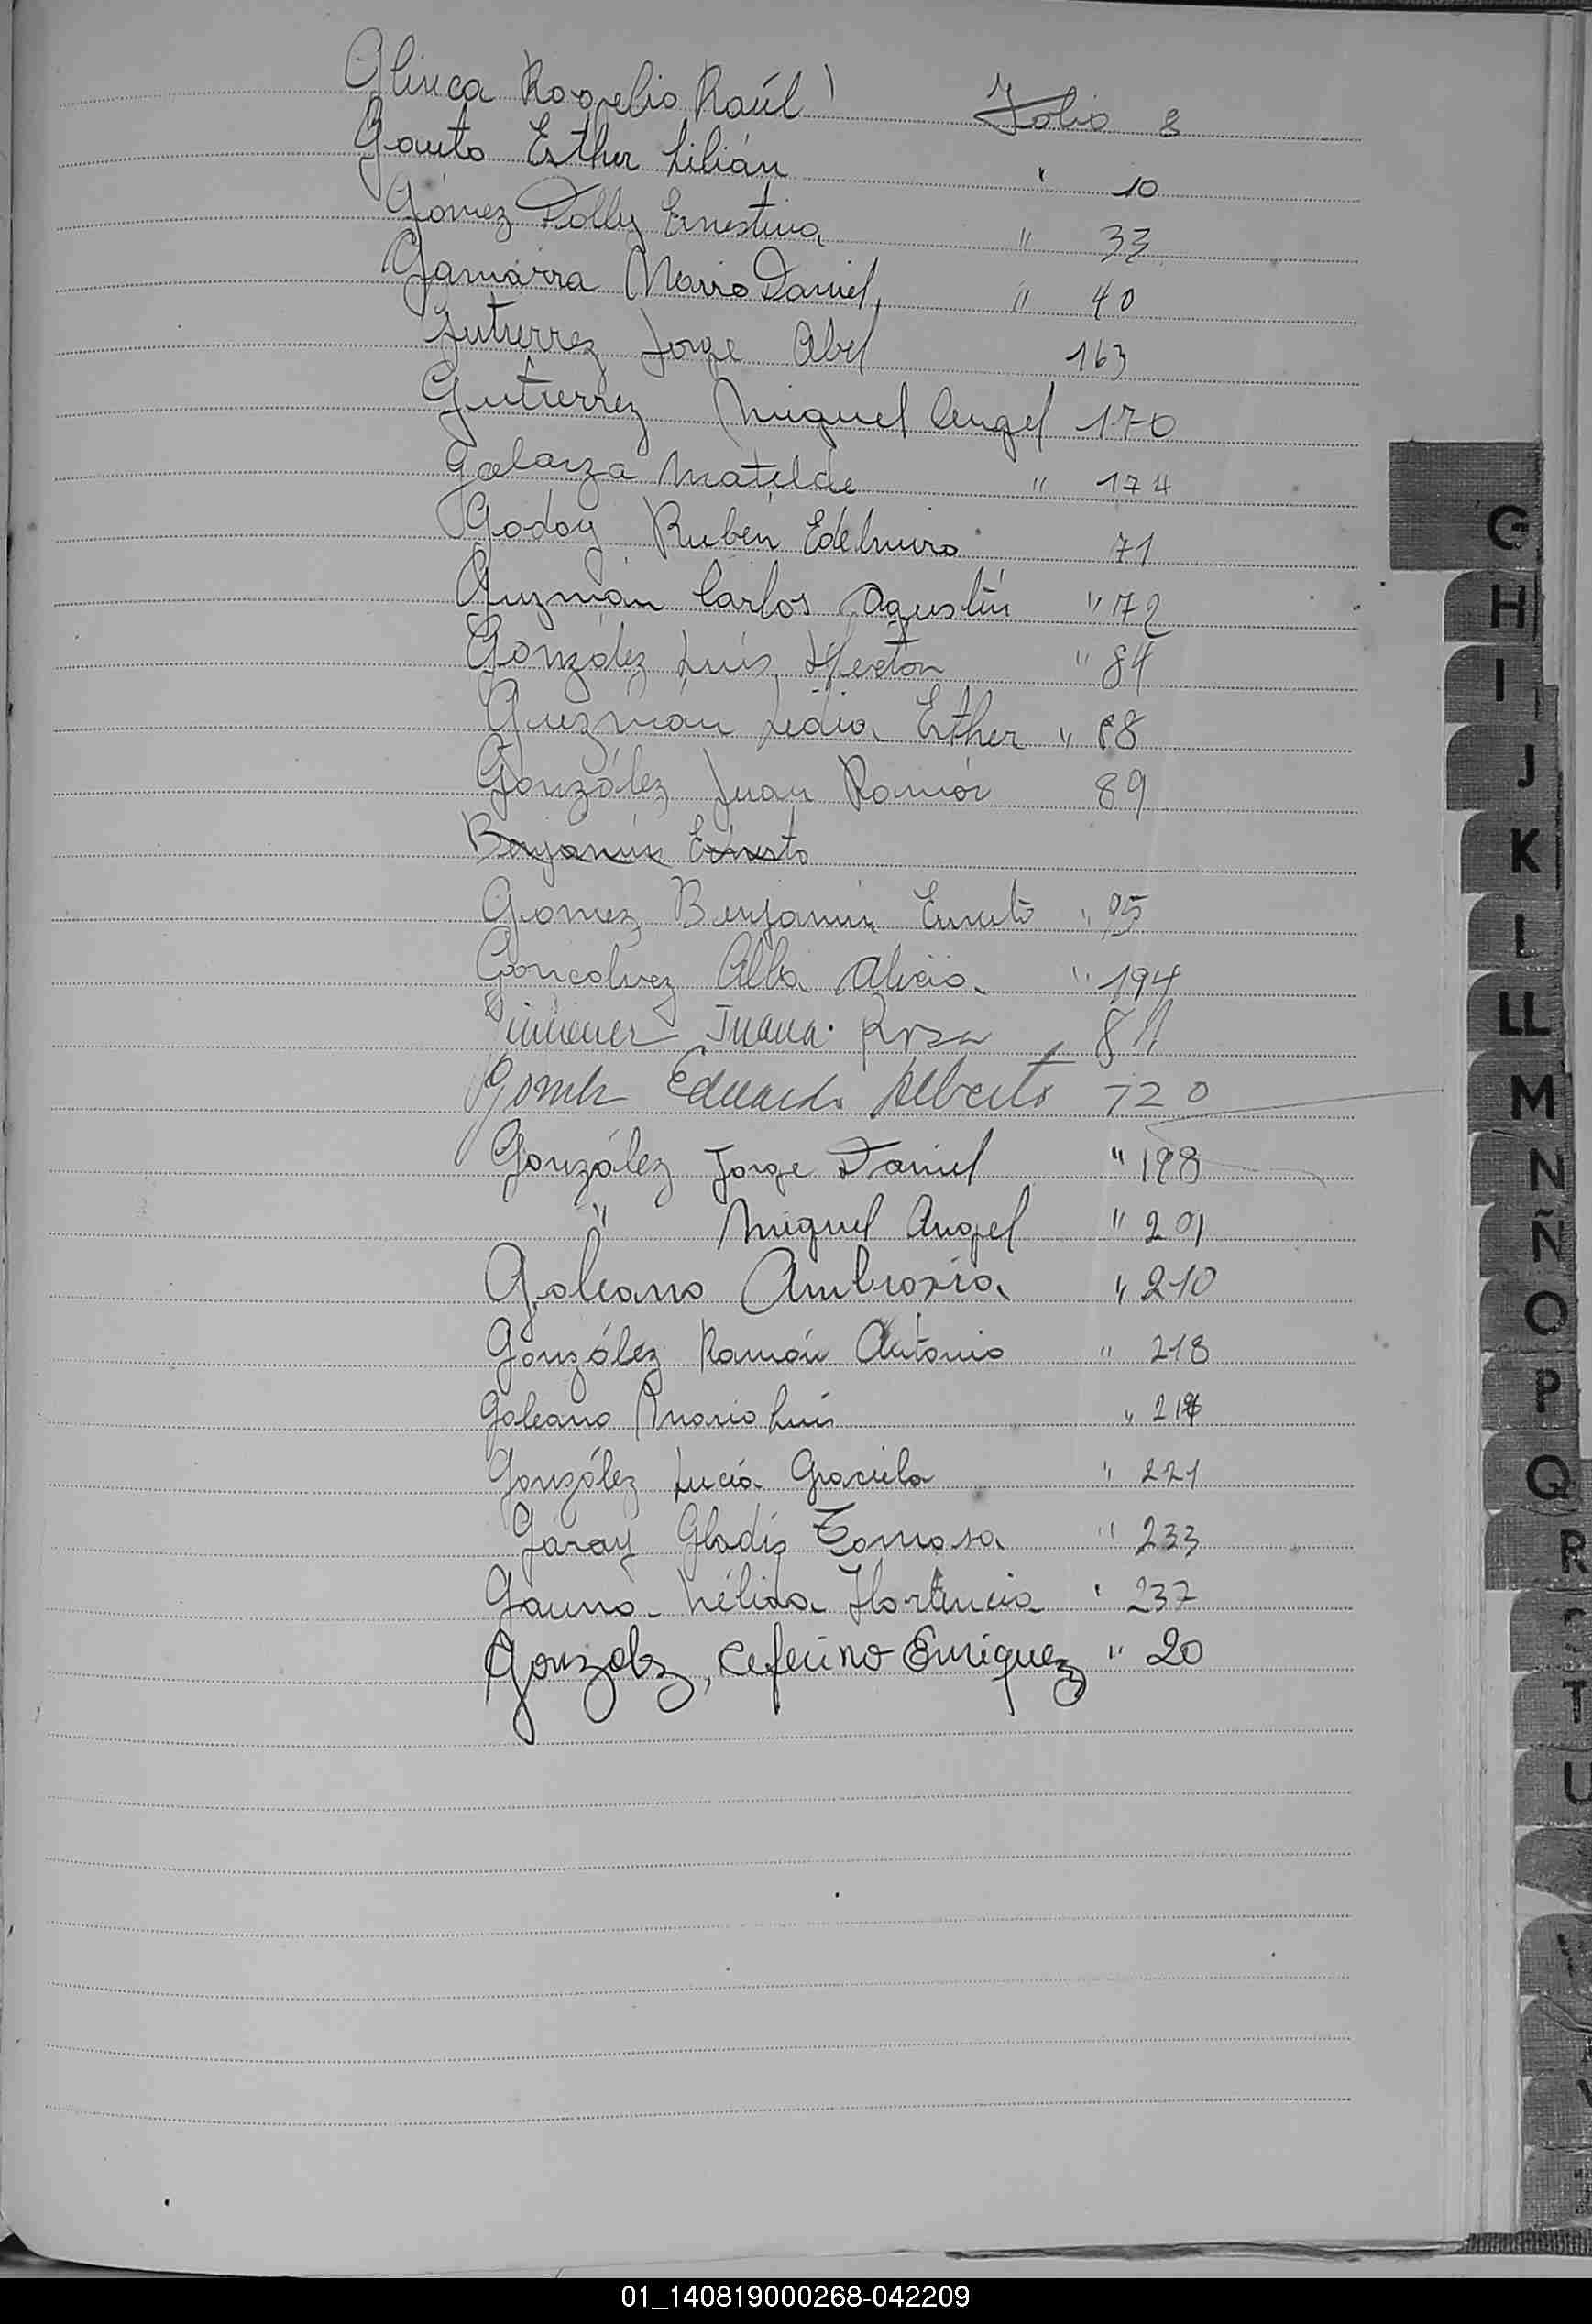 Glinca Rogelio Raúl Folio 8
Gauto Esther Lilián " 10
Gómez Dolly Ernestina " 33
Gamarra Mario Daniel " 40
Gutierrez Jorge Abel 163
Gutierrez Miguel Angel 170
Galarza Matilde " 174
Godoy Rubén Edelmiro 71
Guzmán Carlos Agustín " 72
González Luis Hector " 84
Guzman Lidia Esther " 88
González Juan Ramón 89
Benjamin Ernesto
Gomez Benjamin Ernesto " 95
Goncalvez Alba Alicia " 194
Juana Rosa 81
Gomez Eduardo Alberto 120
González Jorge Daniel " 198
" Miguel Angel " 201
Galeano Ambrosia " 210
González Ramón Antonio " 218
Galeano Mario Luis "
González Lucía Graciela " 221
Garay Gladis Tomasa " 233
Gauna Nélida Hortencia " 237
Gonzalez, Ceferino Enriquez " 20
G
H
I
J
K
L
LL
M
N
Ñ
O
P
Q
R
S
T
U
01_140819000268-042209